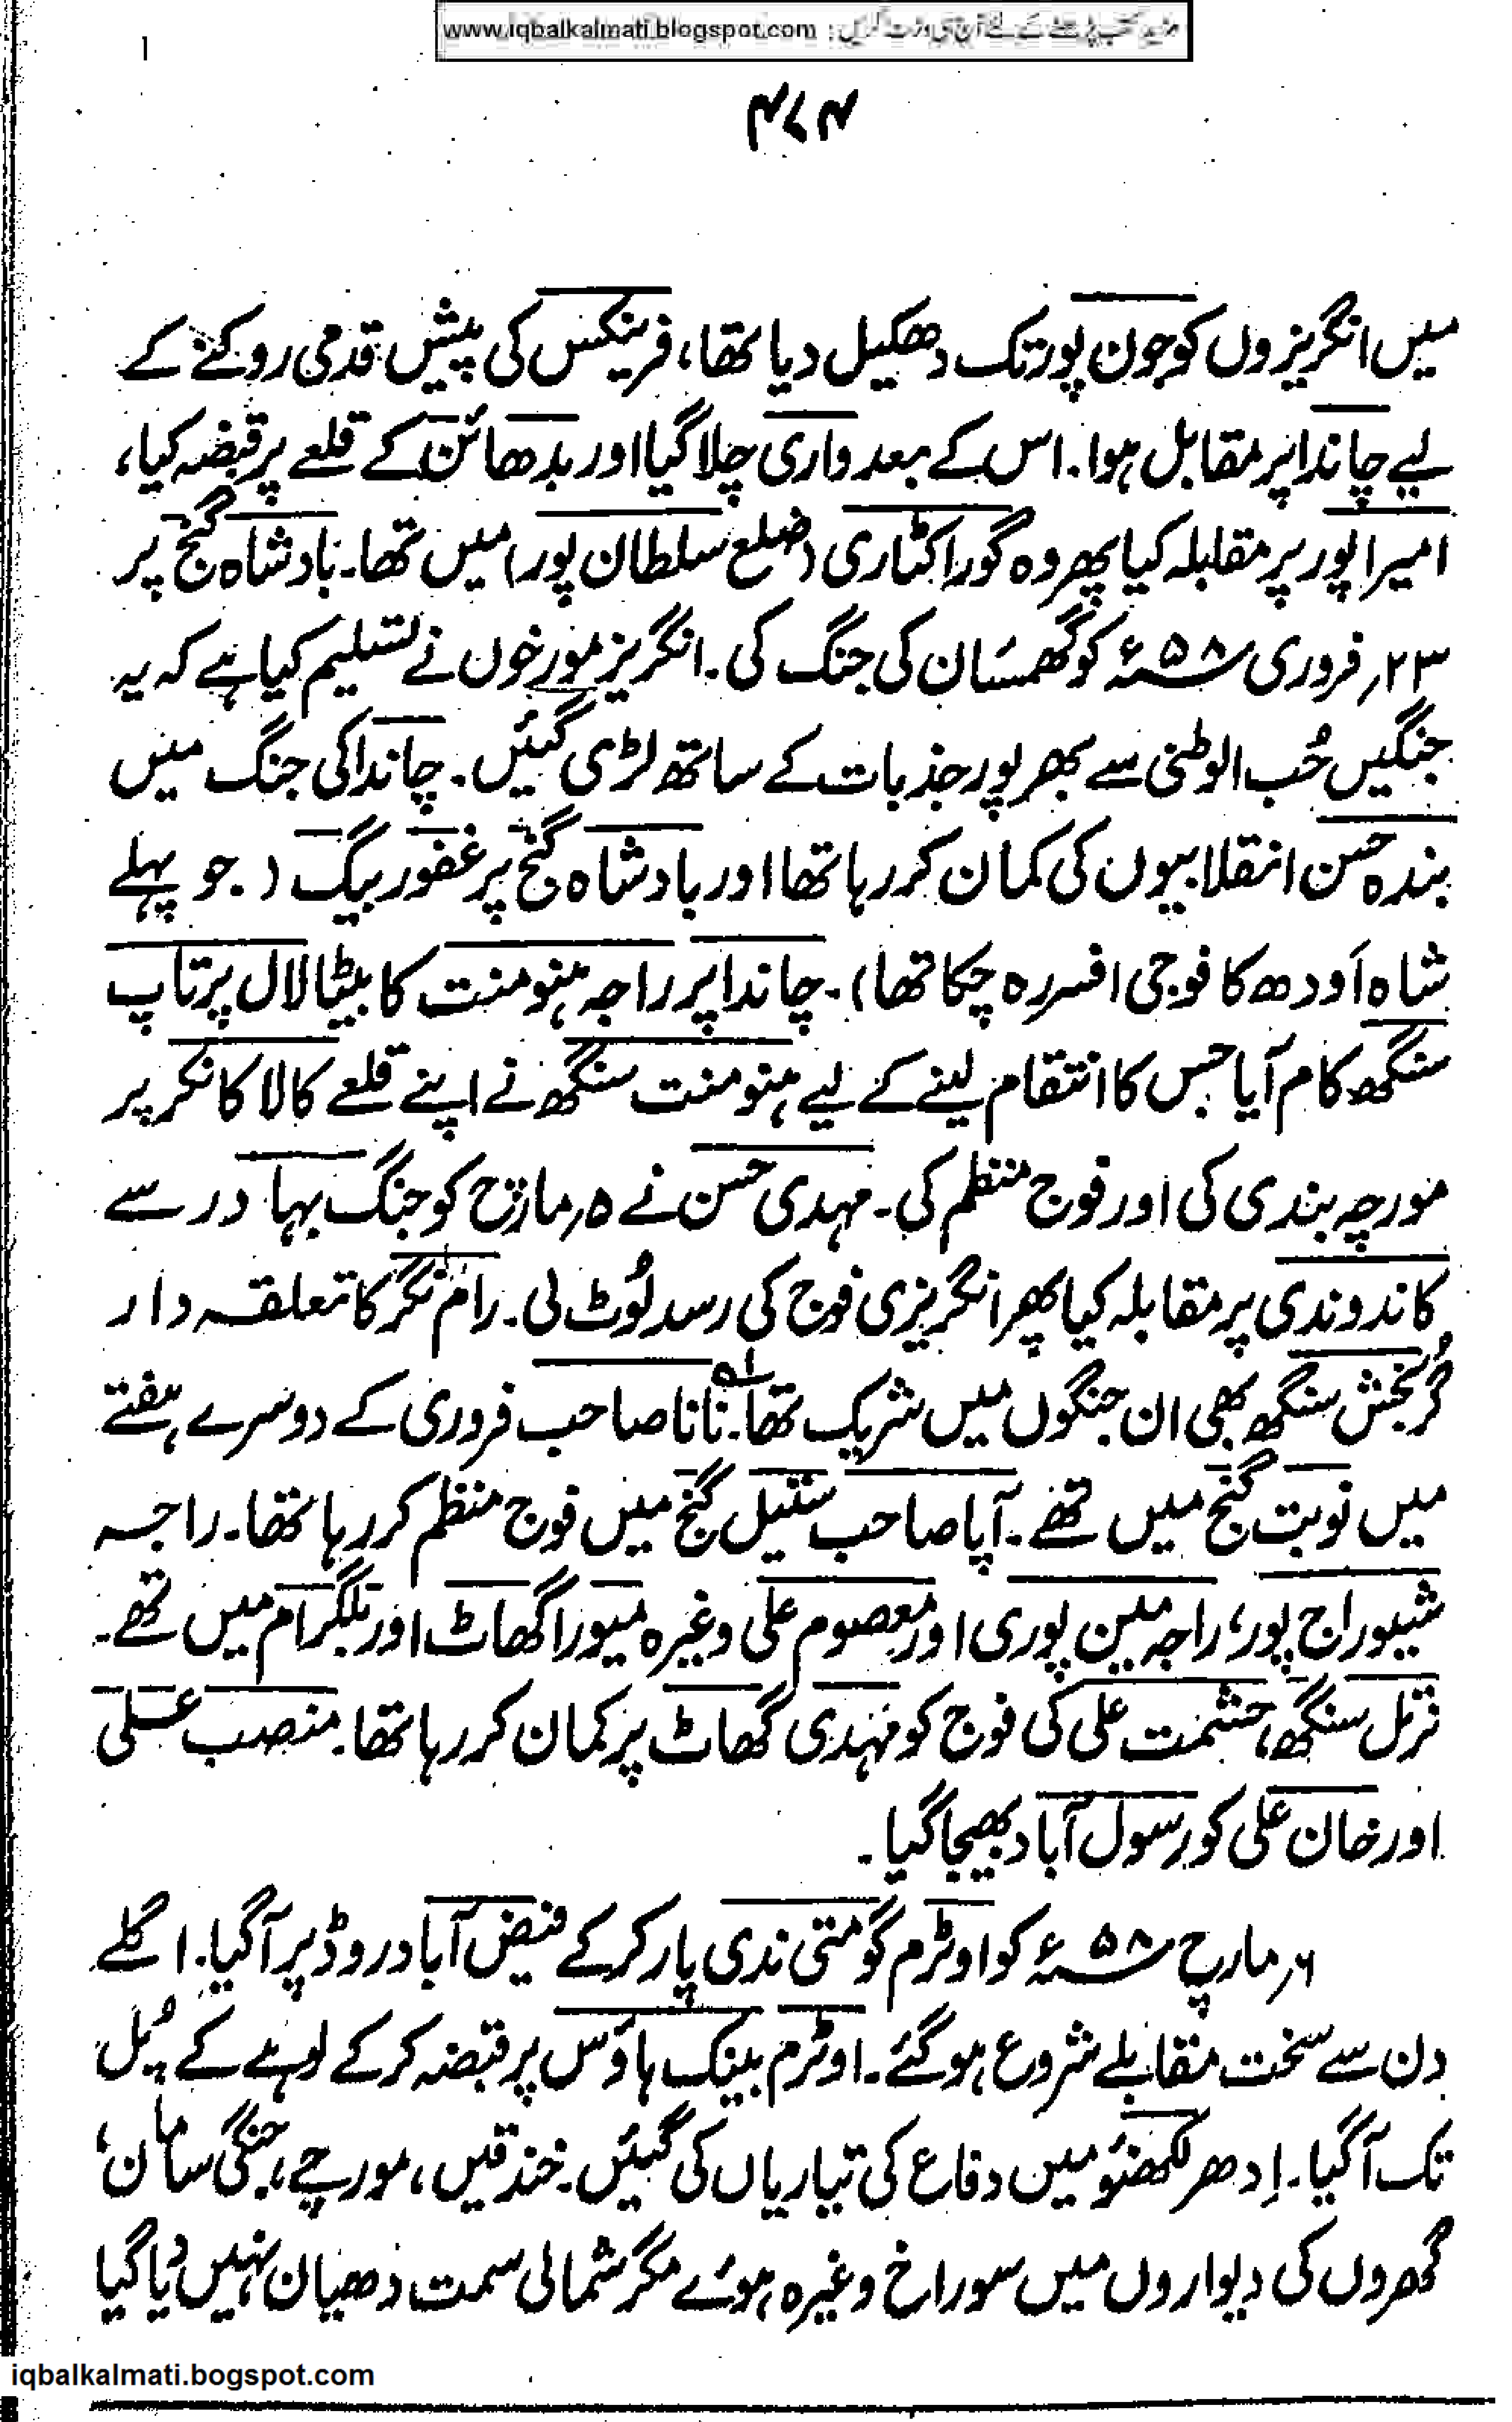 مزید کتب پڑھنے کے لئے آج ہی وزٹ کریں : www.iqbalkalmati.blogspot.com
۴۷۴
میں انگریزوں کو جون پور تک دھکیل دیا تھا، فرینکس کی پیش قدمی روکنے کے
لیے چاندا پر مقابل ہوا۔ اس کے بعد واری چلا گیا اور بدھائن کے قلعے پر قبضہ کیا،
امیرا پور پر مقابلہ کیا پھر وہ گورا کٹاری (ضلع سلطان پور) میں تھا۔ بادشاہ گنج پر
۲۳؍ فروری ۵۸ء کو گھمسَان کی جنگ کی۔ انگریز مورخوں نے تسلیم کیا ہے کہ یہ
جنگیں حُب الوطنی سے بھرپور جذبات کے ساتھ لڑی گئیں۔ چاندا کی جنگ میں
بندہ حسن انقلابیوں کی کمان کر رہا تھا اور بادشاہ گنج پر غفور بیگ (جو پہلے
شاہ اَودھ کا فوجی افسر رہ چکا تھا)۔ چاندا پر راجہ ہنومنت کا بیٹا لال پرتاپ
سنگھ کام آیا جس کا انتقام لینے کے لیے ہنومنت سنگھ نے اپنے قلعے کالا کانکر پر
مورچہ بندی کی اور فوج منظم کی۔ مہدی حسن نے ۵؍ مارچ کو جنگ بہادر سے
کاندوندی پر مقابلہ کیا پھر انگریزی فوج کی رسد لُوٹ لی۔ رام نگر کا تعلقہ دار
گُربخش سنگھ بھی ان جنگوں میں شریک تھا۔ نانا صاحب فروری کے دوسرے ہفتے
میں نوبت گنج میں تھے۔ آپا صاحب ستیل گنج میں فوج منظم کر رہا تھا۔ راجہ
شیوراج پور، راجہ مین پوری اور معصوم علی وغیرہ میورا گھاٹ اور بلگرام میں تھے۔
نرتل سنگھ، حشمت علی کی فوج کو مہدی گھاٹ پر کمان کر رہا تھا۔ منصب علی
اور خان علی کو رسول آباد بھیجا گیا۔
۶؍ مارچ ۵۸ء کو اوٹرم گومتی ندی پار کر کے فیض آباد روڈ پر آگیا۔ اگلے
دن سے سخت مقابلے شروع ہو گئے۔ اوٹرم بینک ہاؤس پر قبضہ کر کے لوہے کے پُل
تک آگیا۔ اِدھر لکھنؤ میں دفاع کی تیاریاں کی گئیں۔ خندقیں، مورچے، جنگی سامان،
گھروں کی دیواروں میں سوراخ وغیرہ ہوئے مگر شمالی سمت دھیان نہیں دیا گیا
iqbalkalmati.bogspot.com